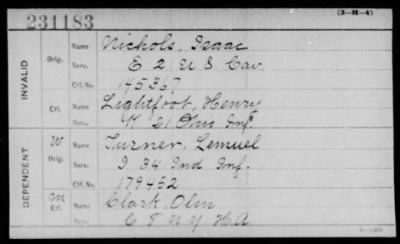 231183
(3-H-4)
INVALID
Orig.
Name Nichols, Isaac
Serv. E 2 U S Cav.
Ctf. No. 145367
Ctf.
Name Lightfoot, Henry
Serv. K 21 Ohio Inf.
DEPENDENT
W
Orig.
Name Turner, Lemuel
Serv. I 34 Ind Inf.
Ctf. No. 179452
M
Ctf.
Name Clark, Olin
Serv. C 5 N Y H.A